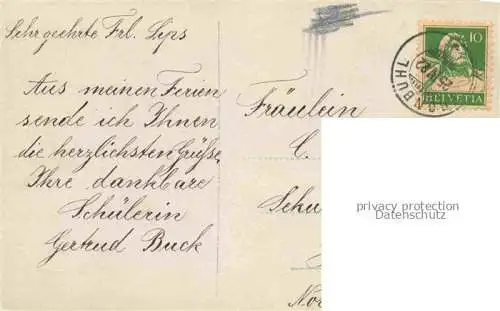 Sehr geehrte Frl. Lips
Aus meinen Ferien
sende ich Ihnen
die herzlichsten Grüsse
Ihre dankbare
Schülerin
Gertrud Buck
Fräulein
C.
Schu
No
10
HELVETIA
BÜHL
privacy protection
Datenschutz